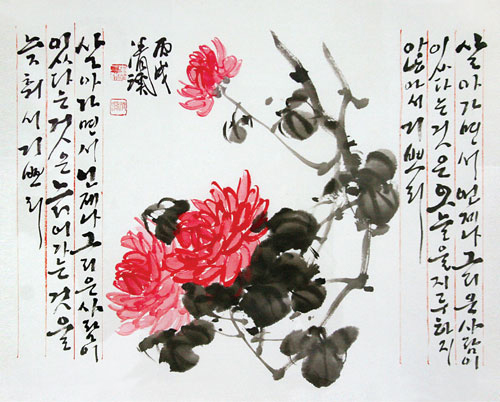 살아가면서 언제나 그리운 사람이
있다는 것은 오늘을 지루하지
않아서 기쁘리
丙戌
살아가면서 언제나 그리운 사람이
있다는 것은 늙어가는 것을
늦춰서 기쁘리